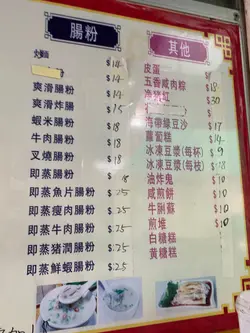 腸粉
炒麵 $14
爽滑腸粉 $14
爽滑炸腸 $15
蝦米腸粉 $18
牛肉腸粉 $18
叉燒腸粉 $18
即蒸腸粉 $18
即蒸魚片腸粉 $25
即蒸瘦肉腸粉 $25
即蒸牛肉腸粉 $25
即蒸猪潤腸粉 $25
即蒸鮮蝦腸粉 $25
其他
皮蛋
五香咸肉粽 $18
$30
海帶綠豆沙 $17
蘿蔔糕 $14
冰凍豆漿(每杯) $9
冰凍豆漿(每枝) $18
油炸鬼 $10
咸煎餅 $10
牛脷酥 $10
煎堆 $10
白糖糕 $
黄糖糕 $